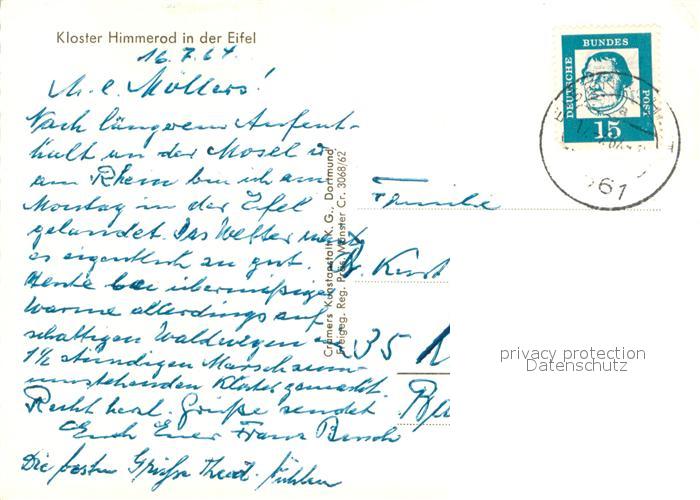 Kloster Himmerod in der Eifel
16.7.64.
M. l. Möllers!
Nach längerem Aufent-
halt an der Mosel u.
am Rhein bin ich am
Montag in der Eifel
gelandet. Das Wetter meint
es eigentlich zu gut.
Heute bei übermäßiger
Wärme allerdings auf
schattigen Waldwegen
1½ stündigen Marsch zum
umstehenden Kloster gemacht.
Recht herzl. Grüße sendet
Euch Euer Franz
Die besten Grüße Theod.
Cramers Kunstanstalt K. G., Dortmund
Freigeg. Reg. Präs. Münster Cr. 3068/62
DEUTSCHE BUNDES POST
15
Familie
Kurt
35
privacy protection
Datenschutz